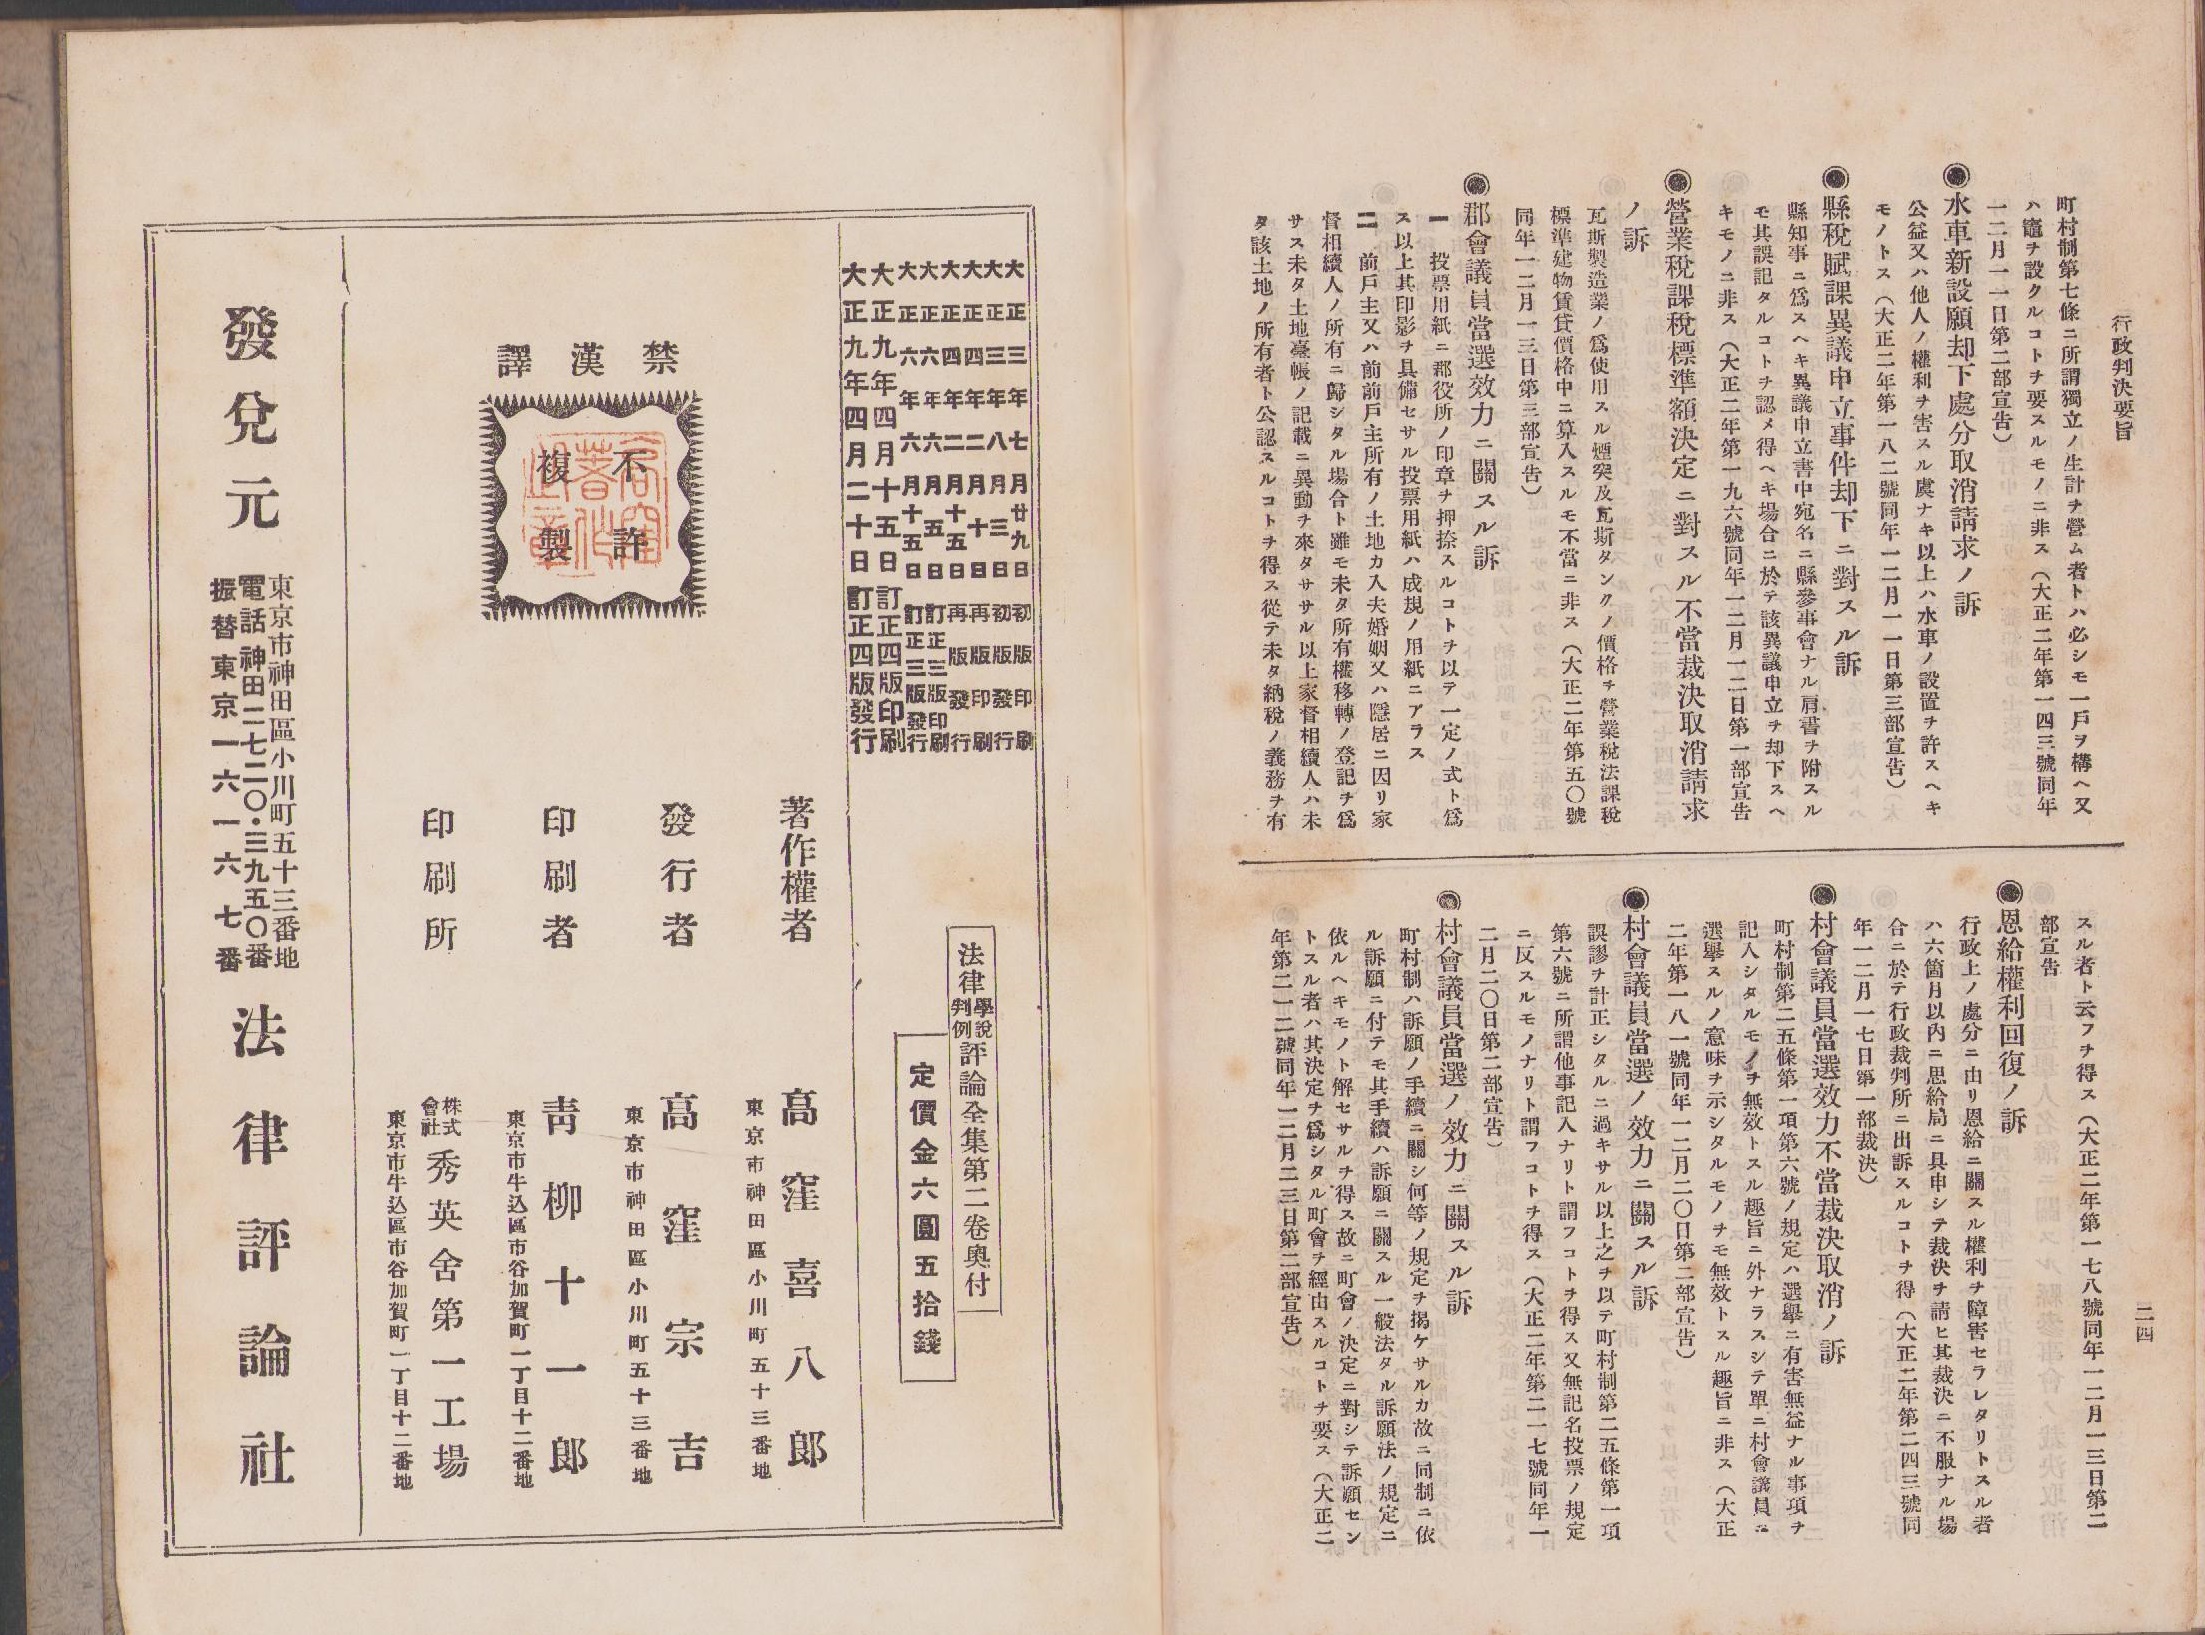 行政判決要旨
二四
町村制第七條ニ所謂獨立ノ生計ヲ營ム者トハ必シモ一戶ヲ構ヘ又
ハ竈ヲ設クルコトヲ要スルモノニ非ス（大正二年第一四三號同年
一二月一一日第二部宣告）
◉水車新設願却下處分取消請求ノ訴
公益又ハ他人ノ權利ヲ害スル虞ナキ以上ハ水車ノ設置ヲ許スヘキ
モノトス（大正二年第一八二號同年一二月一一日第三部宣告）
◉縣稅賦課異議申立事件却下ニ對スル訴
縣知事ニ爲スヘキ異議申立書中宛名ニ縣參事會ナル肩書ヲ附スル
モ其誤記タルコトヲ認メ得ヘキ場合ニ於テ該異議申立ヲ却下スヘ
キモノニ非ス（大正二年第一九六號同年一二月一二日第一部宣告
◉營業稅課稅標準額決定ニ對スル不當裁決取消請求
ノ訴
瓦斯製造業ノ爲使用スル煙突及瓦斯タンクノ價格ヲ營業稅法課稅
標準建物賃貸價格中ニ算入スルモ不當ニ非ス（大正二年第五〇號
同年一二月一三日第三部宣告）
◉郡會議員當選效力ニ關スル訴
一　投票用紙ニ郡役所ノ印章ヲ押捺スルコトヲ以テ一定ノ式ト爲
ス以上其印影ヲ具備セサル投票用紙ハ成規ノ用紙ニアラス
二　前戶主又ハ前前戶主所有ノ土地カ入夫婚姻又ハ隱居ニ因リ家
督相續人ノ所有ニ歸シタル場合ト雖モ未タ所有權移轉ノ登記ヲ爲
サス未タ土地臺帳ノ記載ニ異動ヲ來タササル以上家督相續人ハ未
タ該土地ノ所有者ト公認スルコトヲ得ス從テ未タ納稅ノ義務ヲ有
スル者ト云フヲ得ス（大正二年第一七八號同年一二月一三日第二
部宣告
◉恩給權利回復ノ訴
行政上ノ處分ニ由リ恩給ニ關スル權利ヲ障害セラレタリトスル者
ハ六箇月以内ニ恩給局ニ具申シテ裁決ヲ請ヒ其裁決ニ不服ナル場
合ニ於テ行政裁判所ニ出訴スルコトヲ得（大正二年第二四三號同
年一二月一七日第一部裁決）
◉村會議員當選效力不當裁決取消ノ訴
町村制第二五條第一項第六號ノ規定ハ選擧ニ有害無益ナル事項ヲ
記入シタルモノヲ無效トスル趣旨ニ外ナラスシテ單ニ村會議員ニ
選擧スルノ意味ヲ示シタルモノヲモ無效トスル趣旨ニ非ス（大正
二年第一八一號同年一二月二〇日第二部宣告）
◉村會議員當選ノ效力ニ關スル訴
誤謬ヲ訂正シタルニ過キサル以上之ヲ以テ町村制第二五條第一項
第六號ニ所謂他事記入ナリト謂フコトヲ得ス又無記名投票ノ規定
ニ反スルモノナリト謂フコトヲ得ス（大正二年第二一七號同年一
二月二〇日第二部宣告）
◉村會議員當選ノ效力ニ關スル訴
町村制ハ訴願ノ手續ニ關シ何等ノ規定ヲ揭ケサルカ故ニ同制ニ依
ル訴願ニ付テモ其手續ハ訴願ニ關スル一般法タル訴願法ノ規定ニ
依ルヘキモノト解セサルヲ得ス故ニ町會ノ決定ニ對シテ訴願セン
トスル者ハ其決定ヲ爲シタル町會ヲ經由スルコトヲ要ス（大正二
年第二一二號同年一二月二三日第二部宣告）
大正三年七月廿九日初版印刷
大正三年八月三日初版發行
大正四年二月十日再版印刷
大正四年二月十五日再版發行
大正六年六月五日訂正三版印刷
大正六年六月十五日訂正三版發行
大正九年四月十五日訂正四版印刷
大正九年四月二十日訂正四版發行
法律學說判例評論全集第二卷奧付
定價金六圓五拾錢
禁漢譯
不許
複製
著作權者　高窪喜八郎
東京市神田區小川町五十三番地
發行者　高窪宗吉
東京市神田區小川町五十三番地
印刷者　靑柳十一郎
東京市牛込區市谷加賀町一丁目十二番地
印刷所　株式會社秀英舍第一工場
東京市牛込區市谷加賀町一丁目十二番地
發兌元
東京市神田區小川町五十三番地
電話神田二七二〇・三九五〇番
振替東京一六一六七番
法律評論社